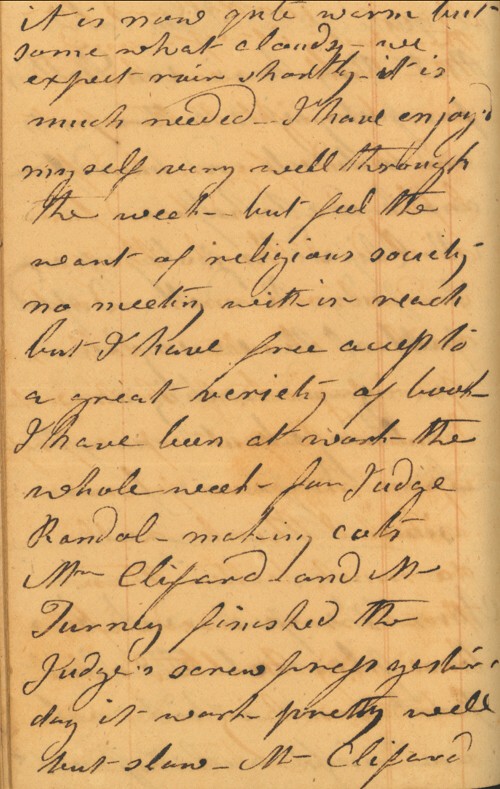 it is now quite warm but
some what cloudy - we
expect rain shortly - it is
much needed - I have enjoy'd
myself very well through
the week - but feel the
want of religious society
no meeting with in reach
but I have free access to
a great veriety of book
I have been at work the
whole week - for Judge
Randol - making cots
Mr Clifard and Mr
Turney finished the
Judge's screw press yester
day it work pretty well
but slow - Mr Clifard